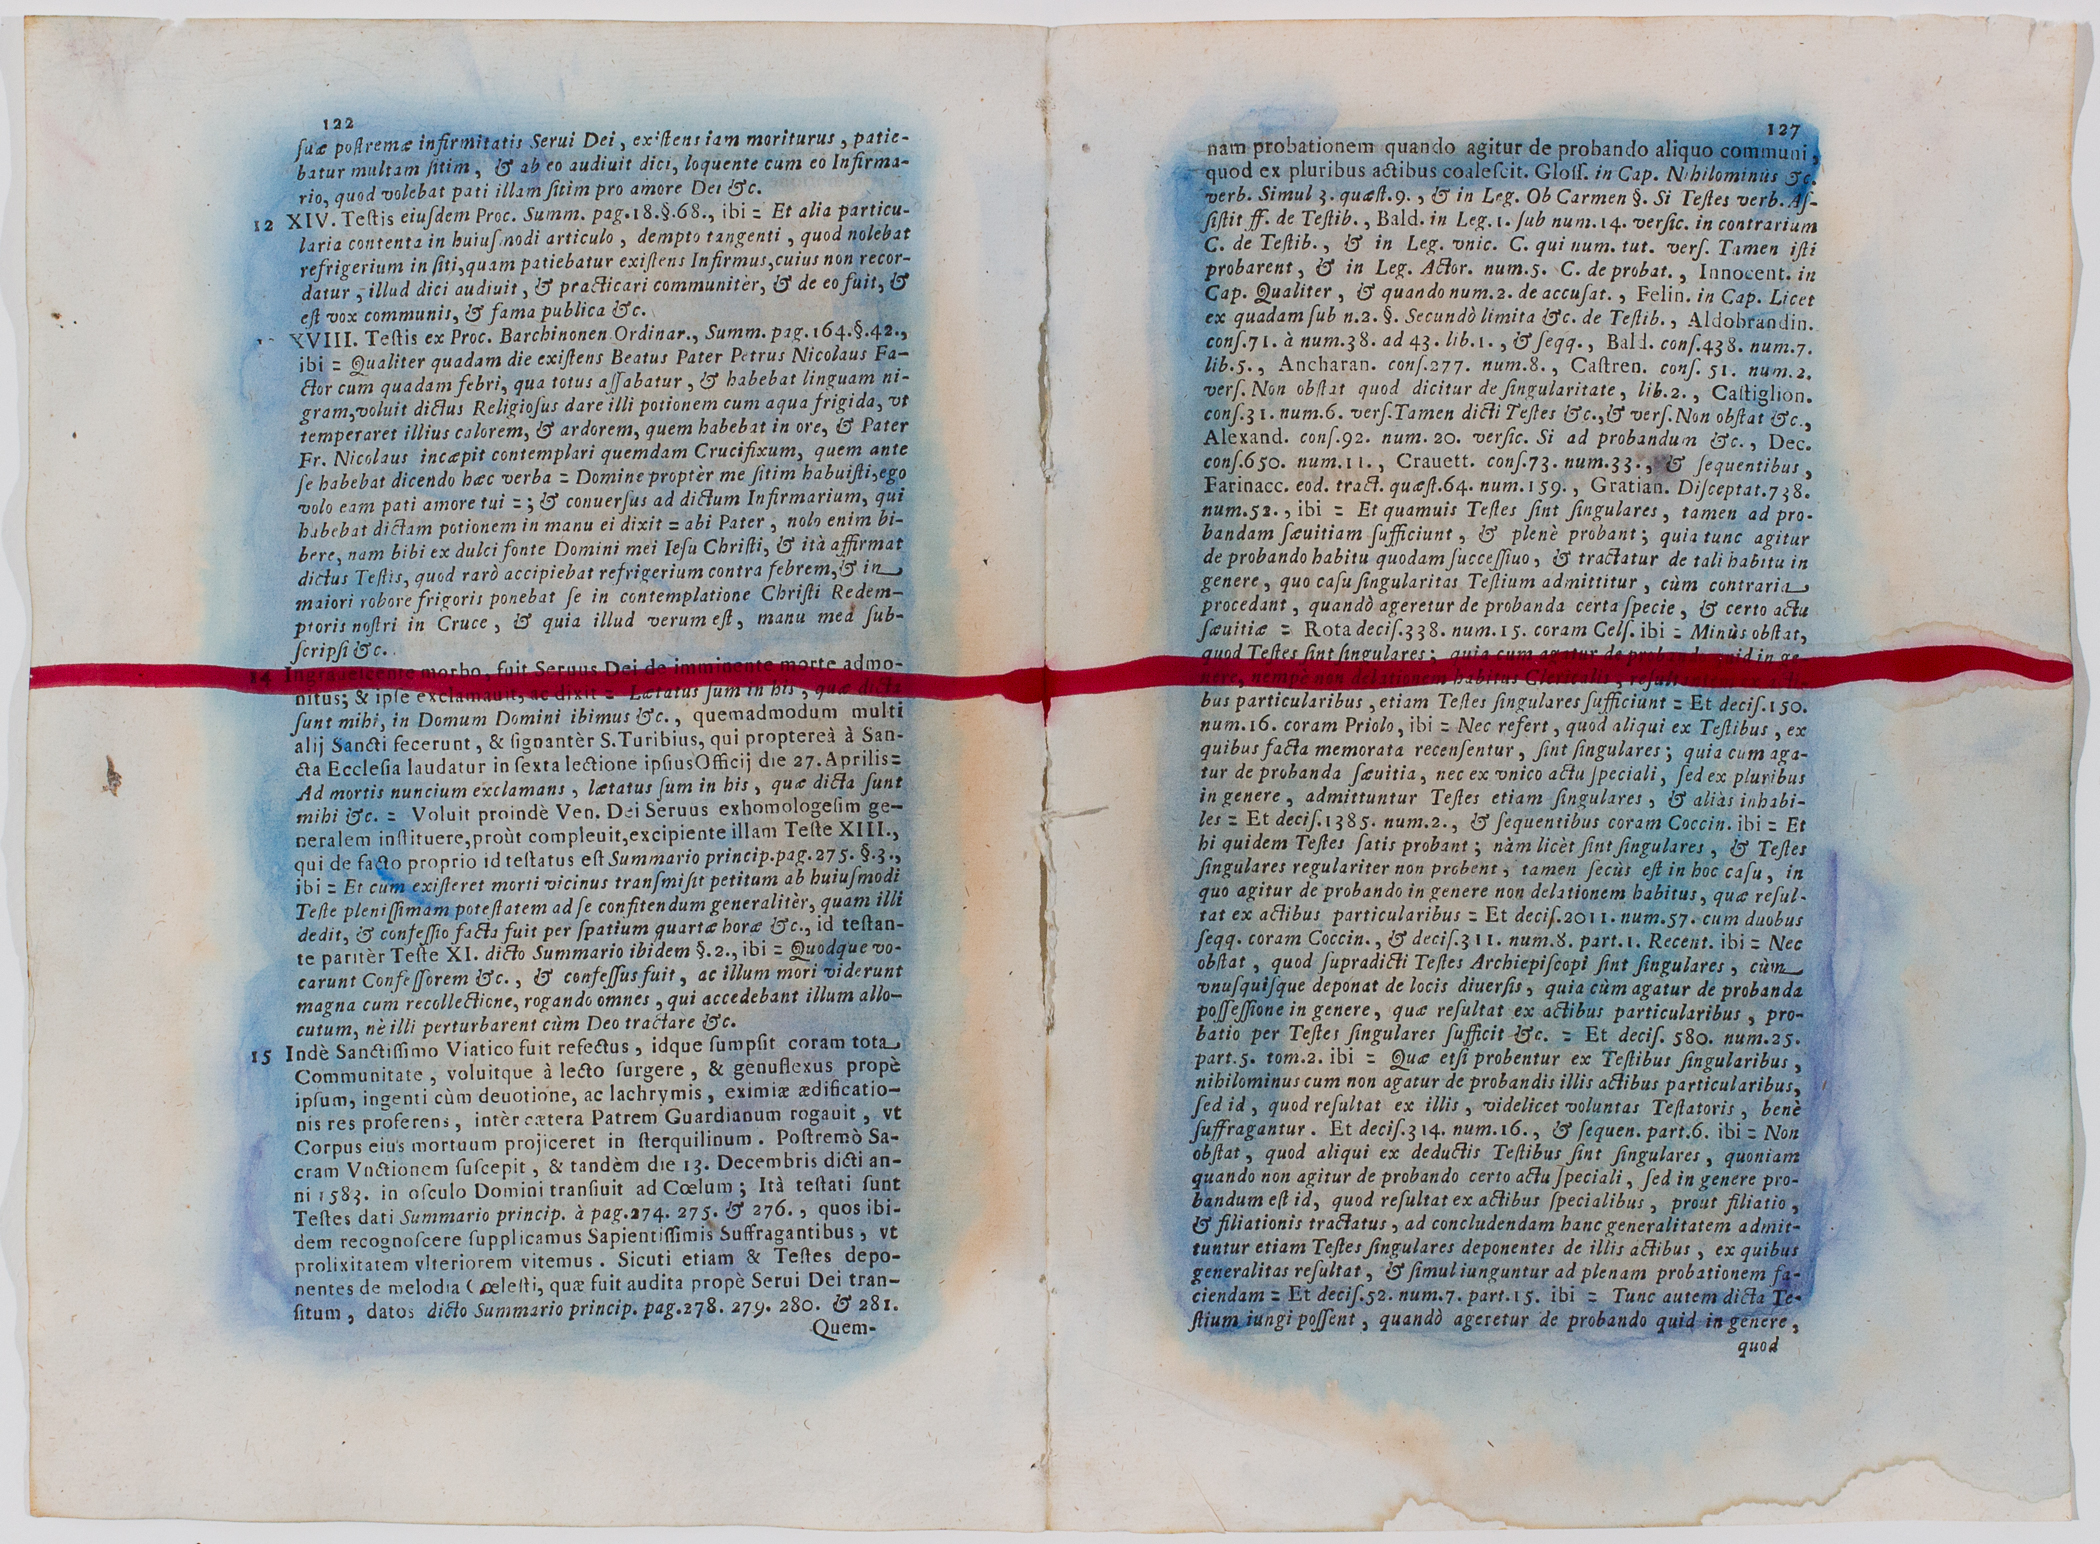 122
ſuæ poſtremæ infirmitatis Serui Dei, exiſtens iam moriturus, patie-
batur multam ſitim, & ab eo audiuit dici, loquente cum eo Infirma-
rio, quod volebat pati illam ſitim pro amore Dei &c.
12 XIV. Teſtis eiuſdem Proc. Summ. pag.18.§.68., ibi = Et alia particu-
laria contenta in huiuſmodi articulo, dempto tangenti, quod nolebat
refrigerium in ſiti, quam patiebatur exiſtens Infirmus, cuius non recor-
datur, illud dici audiuit, & practicari communitèr, & de eo fuit, &
eſt vox communis, & fama publica &c.
XVIII. Teſtis ex Proc. Barchinonen Ordinar., Summ. pag. 164.§.42.,
ibi = Qualiter quadam die exiſtens Beatus Pater Petrus Nicolaus Fa-
ctor cum quadam febri, qua totus aſſabatur, & habebat linguam ni-
gram, voluit dictus Religioſus dare illi potionem cum aqua frigida, vt
temperaret illius calorem, & ardorem, quem habebat in ore, & Pater
Fr. Nicolaus incæpit contemplari quemdam Crucifixum, quem ante
ſe habebat dicendo hæc verba = Domine proptèr me ſitim habuiſti, ego
volo eam pati amore tui =; & conuerſus ad dictum Infirmarium, qui
habebat dictam potionem in manu ei dixit = abi Pater, nolo enim bi-
bere, nam bibi ex dulci fonte Domini mei Ieſu Chriſti, & ità affirmat
dictus Teſtis, quod rarò accipiebat refrigerium contra febrem, & in
maiori robore frigoris ponebat ſe in contemplatione Chriſti Redem-
ptoris noſtri in Cruce, & quia illud verum eſt, manu mea ſub-
ſcripſi &c.
14 Ingraueſcente morbo, fuit Seruus Dei de imminente morte admo-
nitus; & ipſe exclamauit, ac dixit = Lætatus ſum in his, quæ dicta
ſunt mihi, in Domum Domini ibimus &c., quemadmodum multi
alij Sancti fecerunt, & ſignantèr S. Turibius, qui proptereà à San-
cta Eccleſia laudatur in ſexta lectione ipſius Officij die 27. Aprilis =
Ad mortis nuncium exclamans, lætatus ſum in his, quæ dicta ſunt
mihi &c. = Voluit proindè Ven. Dei Seruus exhomologeſim ge-
neralem inſtituere, proùt compleuit, excipiente illam Teſte XIII.,
qui de facto proprio id teſtatus eſt Summario princip. pag. 275. §.3.,
ibi = Et cum exiſteret morti vicinus tranſmiſit petitum ab huiuſmodi
Teſte pleniſſimam poteſtatem ad ſe confitendum generalitèr, quam illi
dedit, & confeſſio facta fuit per ſpatium quartæ horæ &c., id teſtan-
te paritèr Teſte XI. dicto Summario ibidem §.2., ibi = Quodque vo-
carunt Confeſſorem &c., & confeſſus fuit, ac illum mori viderunt
magna cum recollectione, rogando omnes, qui accedebant illum allo-
cutum, nè illi perturbarent cùm Deo tractare &c.
15 Indè Sanctiſſimo Viatico fuit refectus, idque ſumpſit coram tota
Communitate, voluitque à lecto ſurgere, & genuflexus propè
ipſum, ingenti cùm deuotione, ac lachrymis, eximiæ ædificatio-
nis res proferens, intèr cætera Patrem Guardianum rogauit, vt
Corpus eius mortuum projiceret in ſterquilinum. Poſtremò Sa-
cram Vnctionem ſuſcepit, & tandèm die 13. Decembris dicti an-
ni 1583. in oſculo Domini tranſiuit ad Cœlum; Ità teſtati ſunt
Teſtes dati Summario princip. à pag. 274. 275. & 276., quos ibi-
dem recognoſcere ſupplicamus Sapientiſſimis Suffragantibus, vt
prolixitatem vlteriorem vitemus. Sicuti etiam & Teſtes depo-
nentes de melodia Cœleſti, quæ fuit audita propè Serui Dei tran-
ſitum, datos dicto Summario princip. pag. 278. 279. 280. & 281.
Quem-
127
nam probationem quando agitur de probando aliquo communi,
quod ex pluribus actibus coaleſcit. Gloſſ. in Cap. Nihilominùs &c.
verb. Simul 3. quæſt. 9., & in Leg. Ob Carmen §. Si Teſtes verb. Aſ-
ſiſtit ff. de Teſtib., Bald. in Leg. 1. ſub num. 14. verſic. in contrarium
C. de Teſtib., & in Leg. vnic. C. qui num. tut. verſ. Tamen iſti
probarent, & in Leg. Actor. num. 5. C. de probat., Innocent. in
Cap. Qualiter, & quando num. 2. de accuſat., Felin. in Cap. Licet
ex quadam ſub n. 2. §. Secundò limita &c. de Teſtib., Aldobrandin.
conſ. 71. à num. 38. ad 43. lib. 1., & ſeqq., Bald. conſ. 438. num. 7.
lib. 5., Ancharan. conſ. 277. num. 8., Caſtren. conſ. 51. num. 2.
verſ. Non obſtat quod dicitur de ſingularitate, lib. 2., Caſtiglion.
conſ. 31. num. 6. verſ. Tamen dicti Teſtes &c., & verſ. Non obſtat &c.,
Alexand. conſ. 92. num. 20. verſic. Si ad probandum &c., Dec.
conſ. 650. num. 11., Crauett. conſ. 73. num. 33., & ſequentibus,
Farinacc. eod. tract. quæſt. 64. num. 159., Gratian. Diſceptat. 738.
num. 52., ibi = Et quamuis Teſtes ſint ſingulares, tamen ad pro-
bandam ſæuitiam ſufficiunt, & plenè probant; quia tunc agitur
de probando habitu quodam ſucceſſiuo, & tractatur de tali habitu in
genere, quo caſu ſingularitas Teſtium admittitur, cùm contraria
procedant, quandò ageretur de probanda certa ſpecie, & certo actu
ſæuitiæ = Rota deciſ. 338. num. 15. coram Celſ. ibi = Minùs obſtat,
quod Teſtes ſint ſingulares; quia cum agatur de probando quid in ge-
nere, nempè non delationem habitus Clericalis, reſultantem ex
bus particularibus, etiam Teſtes ſingulares ſufficiunt = Et deciſ. 150.
num. 16. coram Priolo, ibi = Nec refert, quod aliqui ex Teſtibus, ex
quibus facta memorata recenſentur, ſint ſingulares; quia cum aga-
tur de probanda ſæuitia, nec ex vnico actu ſpeciali, ſed ex pluribus
in genere, admittuntur Teſtes etiam ſingulares, & aliàs inhabi-
les = Et deciſ. 1385. num. 2., & ſequentibus coram Coccin. ibi = Et
hi quidem Teſtes ſatis probant; nàm licèt ſint ſingulares, & Teſtes
ſingulares regulariter non probent, tamen ſecùs eſt in hoc caſu, in
quo agitur de probando in genere non delationem habitus, quæ reſul-
tat ex actibus particularibus = Et deciſ. 2011. num. 57. cum duobus
ſeqq. coram Coccin., & deciſ. 311. num. 8. part. 1. Recent. ibi = Nec
obſtat, quod ſupradicti Teſtes Archiepiſcopi ſint ſingulares, cùm
vnuſquiſque deponat de locis diuerſis, quia cùm agatur de probanda
poſſeſſione in genere, quæ reſultat ex actibus particularibus, pro-
batio per Teſtes ſingulares ſufficit &c. = Et deciſ. 580. num. 25.
part. 5. tom. 2. ibi = Quæ etſi probentur ex Teſtibus ſingularibus,
nihilominus cum non agatur de probandis illis actibus particularibus,
ſed id, quod reſultat ex illis, videlicet voluntas Teſtatoris, benè
ſuffragantur. Et deciſ. 314. num. 16., & ſequen. part. 6. ibi = Non
obſtat, quod aliqui ex deductis Teſtibus ſint ſingulares, quoniam
quando non agitur de probando certo actu ſpeciali, ſed in genere pro-
bandum eſt id, quod reſultat ex actibus ſpecialibus, prout filiatio,
& filiationis tractatus, ad concludendam hanc generalitatem admit-
tuntur etiam Teſtes ſingulares deponentes de illis actibus, ex quibus
generalitas reſultat, & ſimul iunguntur ad plenam probationem fa-
ciendam = Et deciſ. 52. num. 7. part. 15. ibi = Tunc autem dicta Te-
ſtium iungi poſſent, quandò ageretur de probando quid in genere,
quod